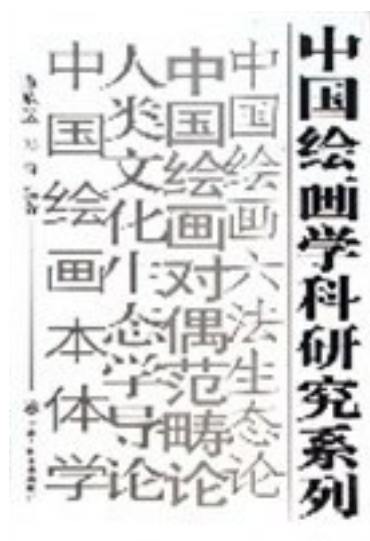 中国绘画学科研究系列
中国绘画六法生态论
中国绘画对偶范畴论
人类文化生态学导论
中国绘画本体学